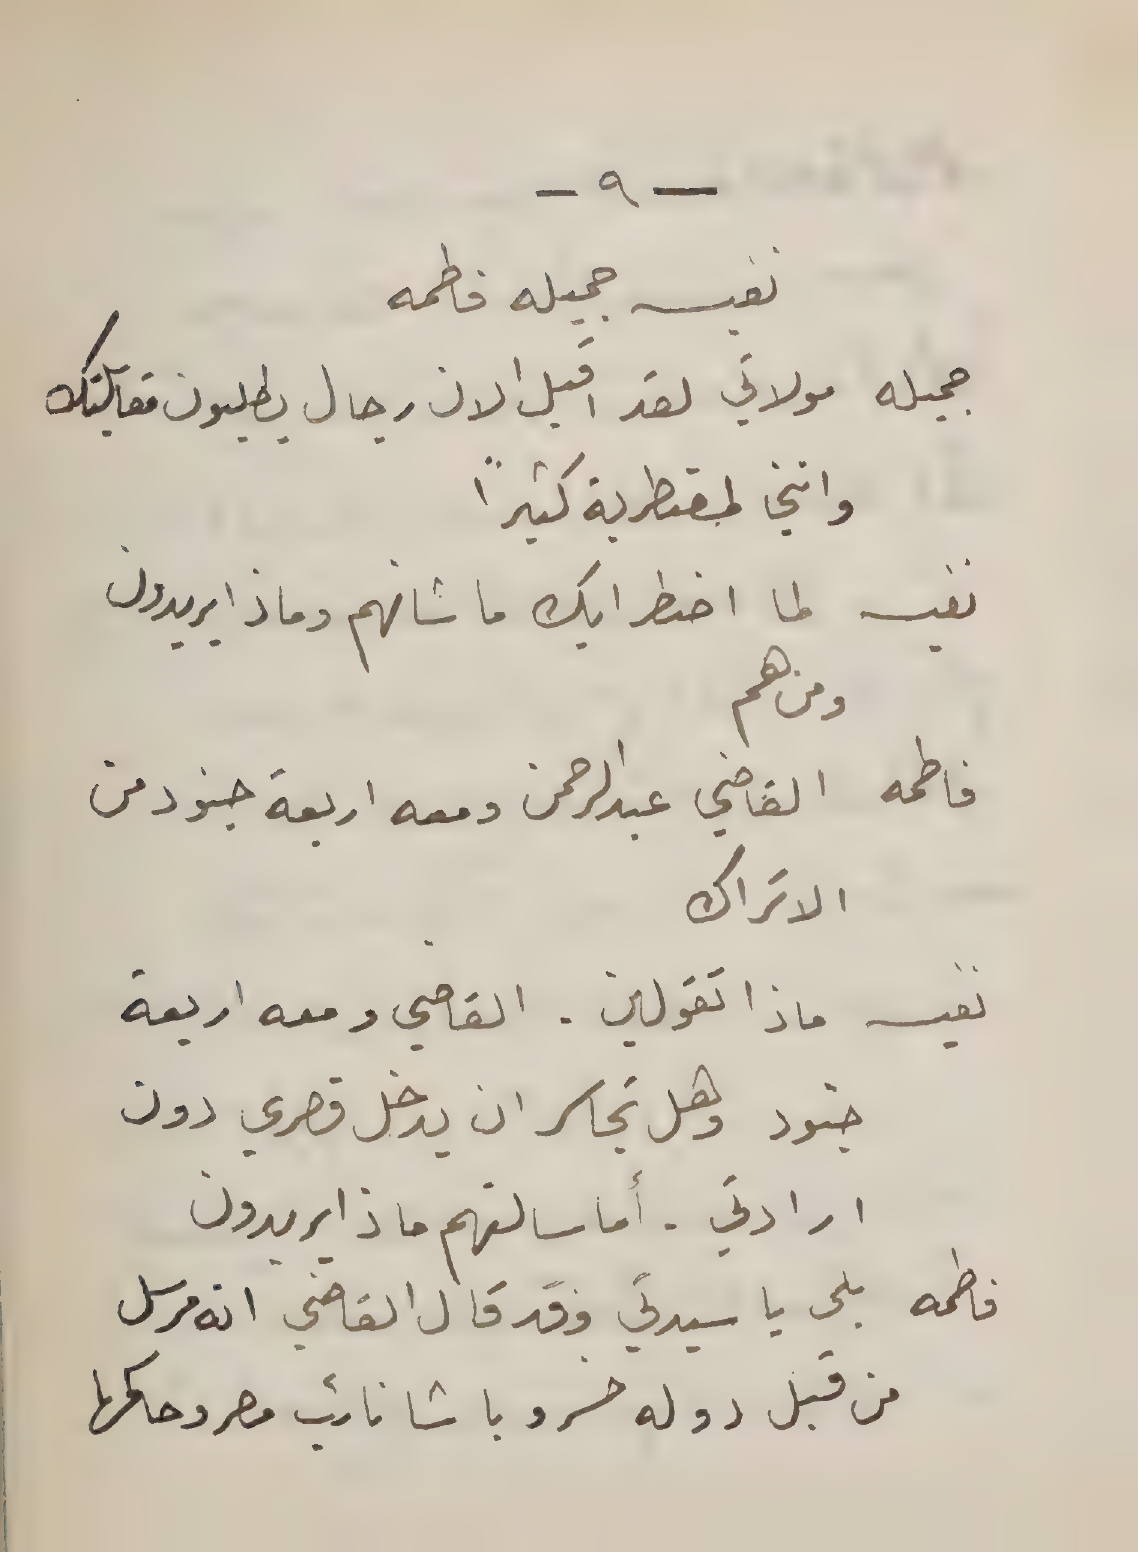 — ٩ —
نفيسه جميله فاطمه
جميله مولاتي لقد اقبل الان رجال يطلبون مقابلتك
وانني لمضطربة كثيراً
نفيسه لما اضطرابك ما شانهم وماذا يريدون
ومن هم
فاطمه القاضي عبدالرحمن ومعه اربعة جنود من
الاتراك
نفيسه ماذا تقولين . القاضي ومعه اربعة
جنود وهل تجاسر ان يدخل قصري دون
ارادتي . أما سالتهم ماذا يريدون
فاطمه بلى يا سيدتي فقد قال القاضي انه مرسل
من قبل دوله خسرو باشا نائب مصر وحاكمها